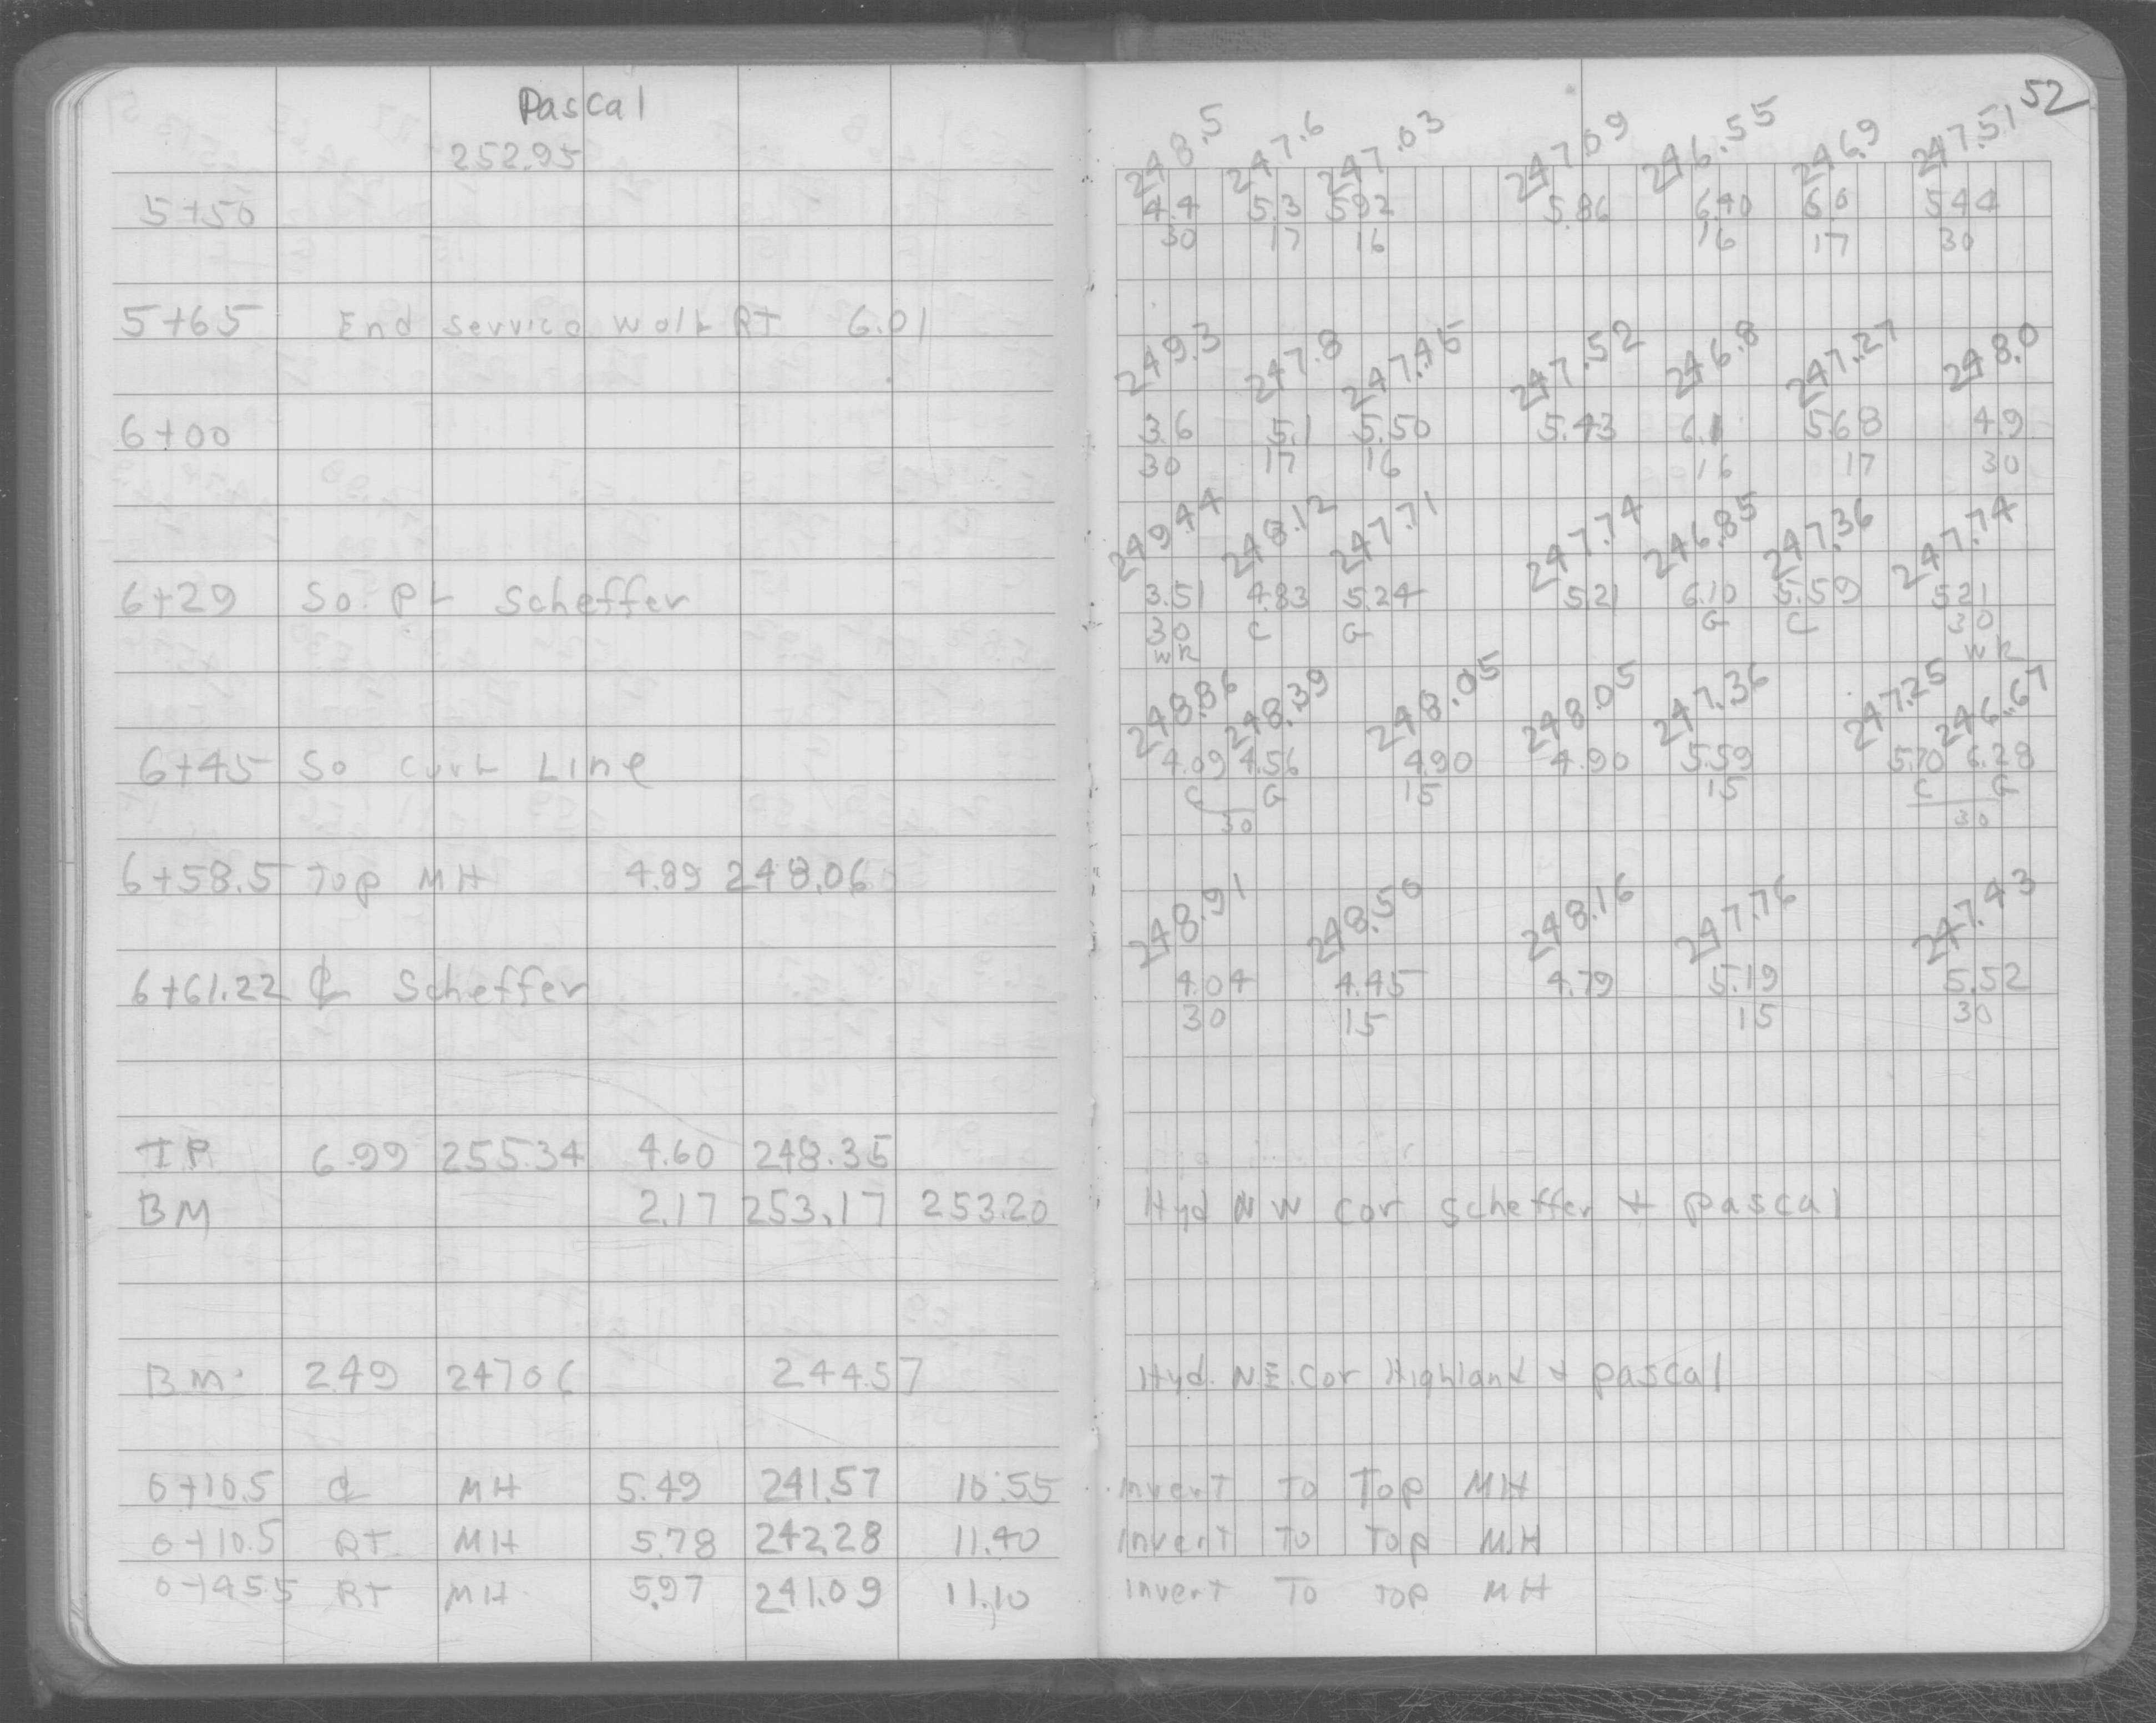 Pascal
252.95
5+50
5+65 End service walk RT 6.01
6+00
6+29 So. PL Scheffer
6+45 So curb Line
6+58.5 Top MH 4.89 248.06
6+61.22 ℄ Scheffer
TP 6.99 255.34 4.60 248.35
BM 2.17 253.17 253.20
BM. 2.49 247.06 244.57
0+10.5 ℄ MH 5.49 241.57 10.55
0+10.5 RT MH 5.78 242.28 11.40
0+45.5 RT MH 5.97 241.09 11.10
52
248.5 247.6 247.03 247.09 246.55 246.9 247.51
4.4 5.3 5.92 5.86 6.40 6.0 5.44
30 17 16 16 17 30
249.3 247.8 247.45 247.52 246.8 247.27 248.0
3.6 5.1 5.50 5.43 6.1 5.68 4.9
30 17 16 16 17 30
249.44 248.12 247.71 247.74 246.85 247.36 247.74
3.51 4.83 5.24 5.21 6.10 5.59 5.21
30 C G G C 30
WK WK
248.86 248.39 248.05 248.05 247.36 247.25 246.67
4.09 4.56 4.90 4.90 5.59 5.70 6.28
C G 15 15 C G
30 30
248.91 248.50 248.16 247.76 247.43
4.04 4.45 4.79 5.19 5.52
30 15 15 30
Hyd N W cor Scheffer + Pascal
Hyd. N.E. Cor Highland + Pascal
Invert To Top MH
Invert To Top MH
Invert To Top MH